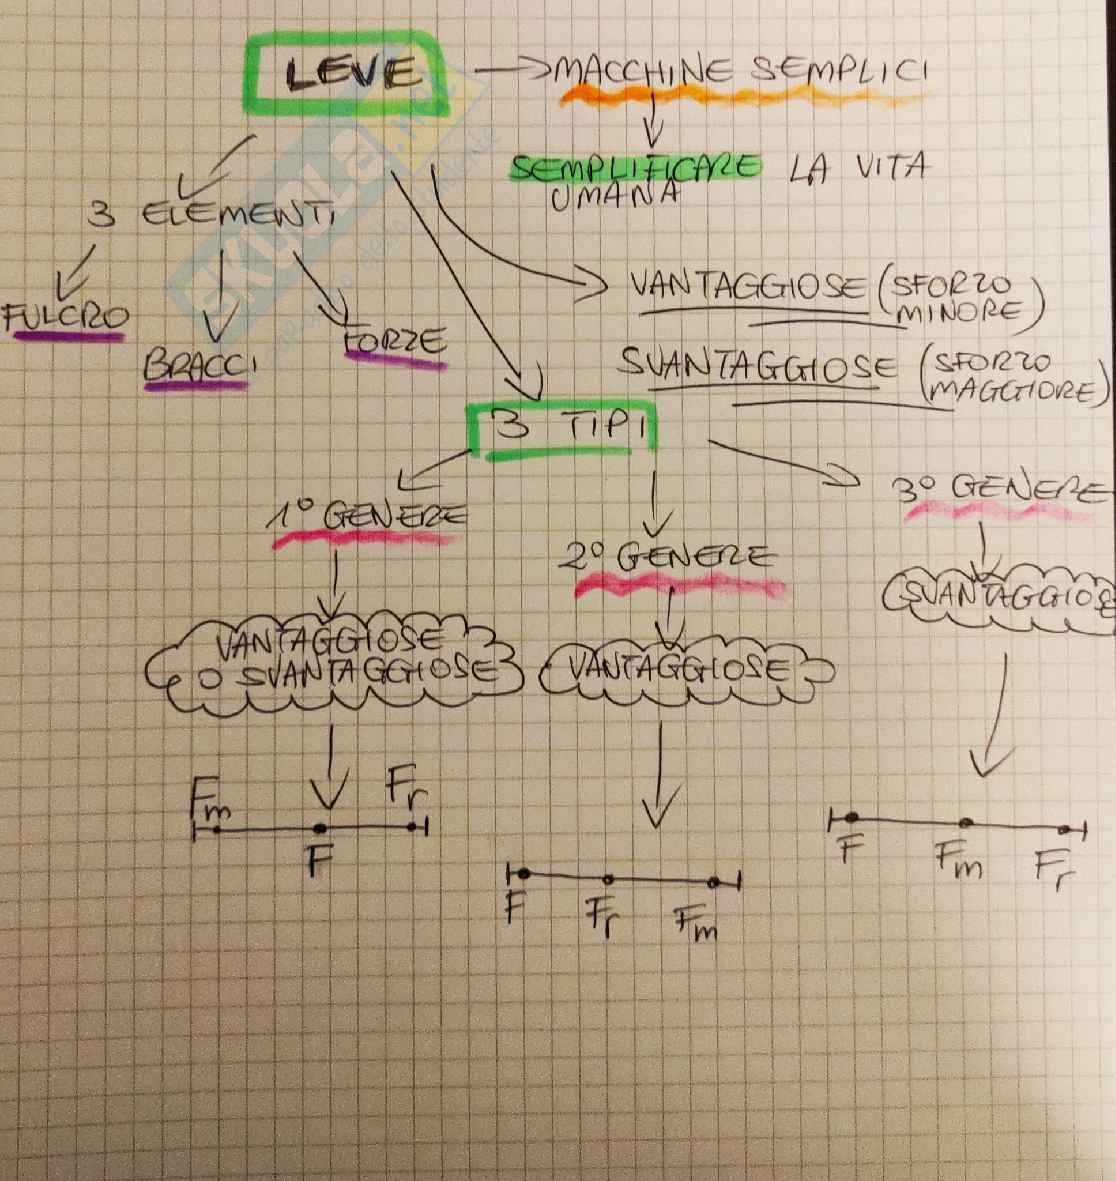 LEVE
MACCHINE SEMPLICI
SEMPLIFICARE LA VITA
UMANA
3 ELEMENTI
FULCRO
BRACCI
FORZE
VANTAGGIOSE (SFORZO
MINORE)
SVANTAGGIOSE (SFORZO
MAGGIORE)
3 TIPI
1° GENERE
2° GENERE
3° GENERE
VANTAGGIOSE
O SVANTAGGIOSE
VANTAGGIOSE
SVANTAGGIOSE
Fm
Fr
F
F
Fr
Fm
F
Fm
Fr